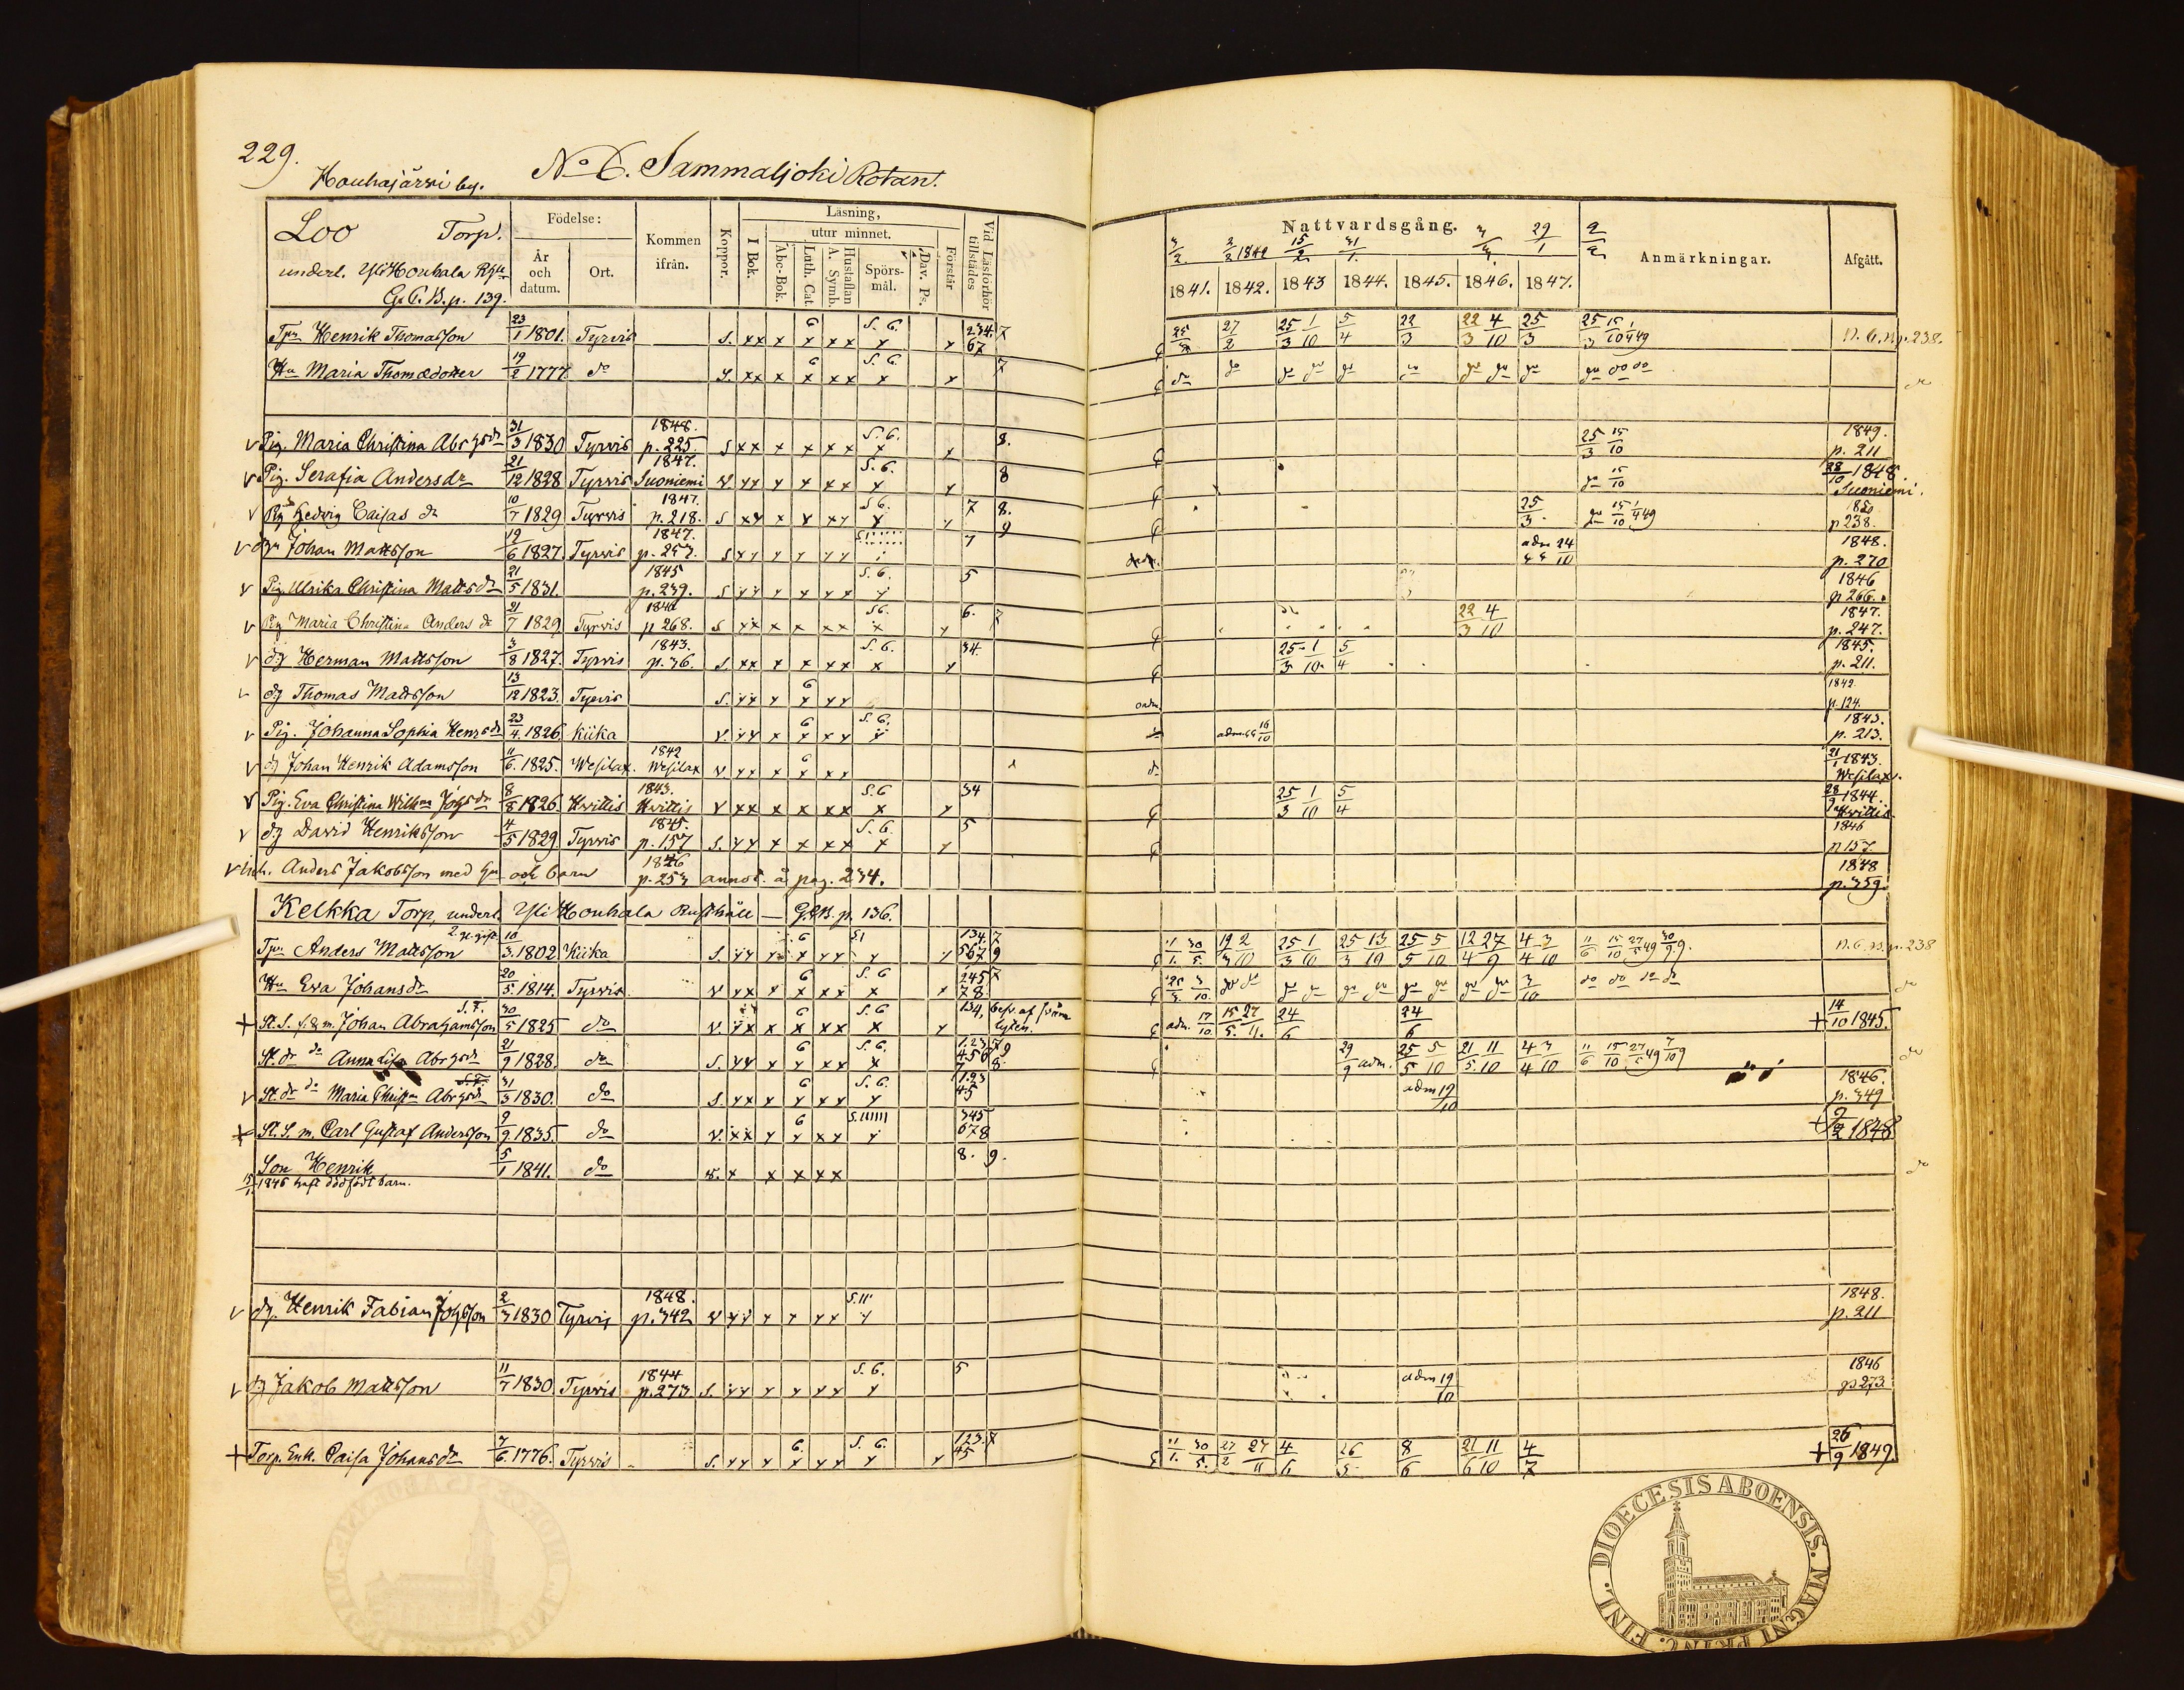 229.
Houhajärvi by.
No 6. Sammaljoki Rotan.
Loo Torp.
underl. Yli Houhala Rhll
G. C. B. p. 139.
Födelse:
År och datum.
Ort.
Kommen ifrån.
Koppor.
Läsning,
I Bok.
utur minnet.
Abc-Bok.
Luth. Cat.
Hustaflan A. Symb.
Spörsmål.
Dav. Ps.
Förstår
Vid Läsförhör tillstädes
Nattvardsgång.
3/2 2/2 1842 15/2 31/1 3/3 29/1 2/2
1841. 1842. 1843 1844. 1845. 1846. 1847.
Anmärkningar.
Afgått.
Tpr Henrik Thomasson 23/1 1801. Tyrvis S. 234. 7 67 27/2 25/3 1/10 5/4 22/3 22/3 4/10 25/3 25/3 15/10 N. C. B. p. 238.
Hu Maria Thomædotter 19/2 1777 do S. 7 do
Pig. Maria Christina Abrhsdr 31/3 1830 Tyrvis 1848. p. 225. S S. 6. 8. 25/3 15/10 1849. p. 211
Pig. Serafia Andersdr 21/12 1828 Tyrvis 1847. Suoniemi V. S. 6. 8 do 15/10 28/10 1848. Suoniemi.
Pig Hedvig Caisas dr 10/7 1829 Tyrvis 1847. p. 218. S S 6. 7 8. 25/3 do 15/10 1850 p 238.
dg Johan Mattsson 19/6 1827. Tyrvis 1847. p. 257. S 7 9 adm 24/10 1848. p. 270
Pig. Ulrika Christina Mattsdr 21/5 1831. 1845 p. 239. S S. 6. 5 1846 p 266.
Pig Maria Christina Anders dr 21/7 1829 Tyrvis 1846 p 268. S S 6. 6. 7 22/3 4/10 1847. p. 247.
dg Herman Mattsson 3/8 1827. Tyrvis 1843. p. 36. S. S. 6. 34. 25/3 1/10 5/4 1845. p. 211.
dg Thomas Mattsson 13/12 1823. Tyrvis S. 6 1842. p. 124.
Pig. Johanna Sophia Henrsdr 23/4 1826 Kiika V. 6 S. 6. adm 16/10 1843. p. 213.
dg Johan Henrik Adamsson 11/6 1825. Wesilax. 1842 Wesilax V 6 21/1 1843. Wesilax.
Pig. Eva Christina Wilhna Johsdr 8/8 1826 Hvittis 1843. Hvittis V S. 6 34 25/3 1/10 5/4 28/9 1844. Hvittis
dg David Henriksson 4/5 1829 Tyrvis 1845. p. 157 S. S. 6. 5 1846 p 157.
inh. Anders Jakobsson med hu och barn 1846 p. 253 annot. å pag. 234. 1848 p. 359
Kelkka Torp, underl. Yli Houhala Rusthåll — G. C. B. p. 136.
2. gl. gift
Tpr Anders Mattsson 10/3 1802 Kiika S. 6 134. 7 567 9 11/1 30/5 19/3 2/10 25/3 1/10 25/3 13/10 25/5 5/10 12/4 27/9 4/4 3/10 11/6 15/10 N. C. B. p. 238
Hu Eva Johansdr 20/5 1814. Tyrvis V 6 S. 6 245 7 78 3/10 do
St. S. f. & m. Johan Abrahamsson 30/5 1825 do V. 6 S. 6 134, adm. 17/10 15/5 27/11 24/6 24/6 + 14/10 1845.
St. dr do Anna Lisa Abrhsdr 21/9 1828. do S. 6 S. 6. 29/9 adm. 25/5 5/10 21/5 11/10 4/4 3/10 11/6 15/10 do
St. dr do Maria Christna Abrhsdr 31/3 1830. do S. 6 S. 6. 123 45 adm 19/10 1846. p. 349
St. S. m. Carl Gustaf Andersson 9/9 1835. do V. 6 345 678 + 9/2 1848
Son Henrik 5/1 1841. do 8. 9. do
15/1 1846 haft dödfödt barn.
dg. Henrik Fabian Johsson 2/3 1830 Tyrvis 1848. p. 342 V 1848. p. 211
dg Jakob Mattsson 11/7 1830 Tyrvis 1844 p. 273 S. S. 6. 5 adm 19/10 1846 p 273
Torp. Enk. Caisa Johansdr 7/6 1776. Tyrvis S. 6. S. 6. 123. 7 45 11/1 30/5 27/2 27/11 4/6 26/5 8/6 21/6 11/10 4/7 + 26/9 1849.
DIOECESIS ABOENSIS. MAGNI PRINC. FINL.